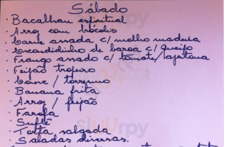 Sábado
- Bacalhau espiritual
- Arroz com brócolis
- Carne assada c/ molho madeira
- Escondidinho de baroa c/ queijo
- Frango assado c/ tomate/
- Feijão tropeiro
- Carne / torresmo
- Banana frita
- Arroz / feijão
- Farofa
- Suflê
- Torta salgada
- Saladas diversas.